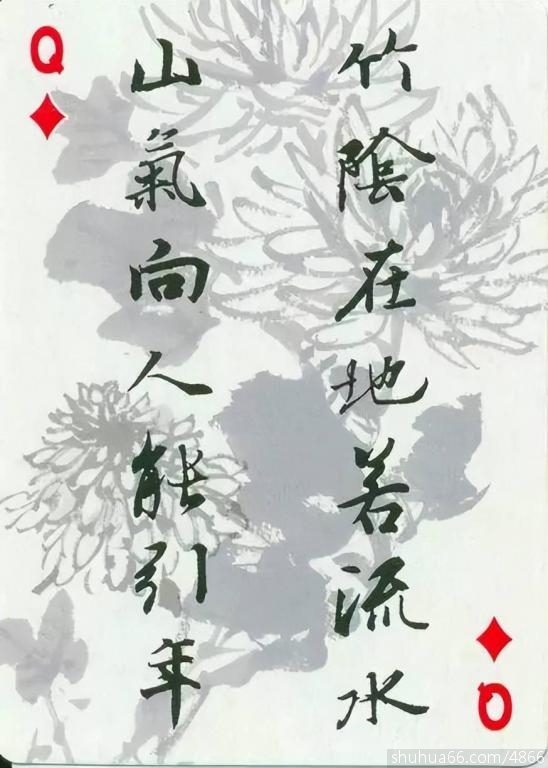 Q
竹陰在地若流水
山氣向人能引年
Q
shuhua66.com/4866